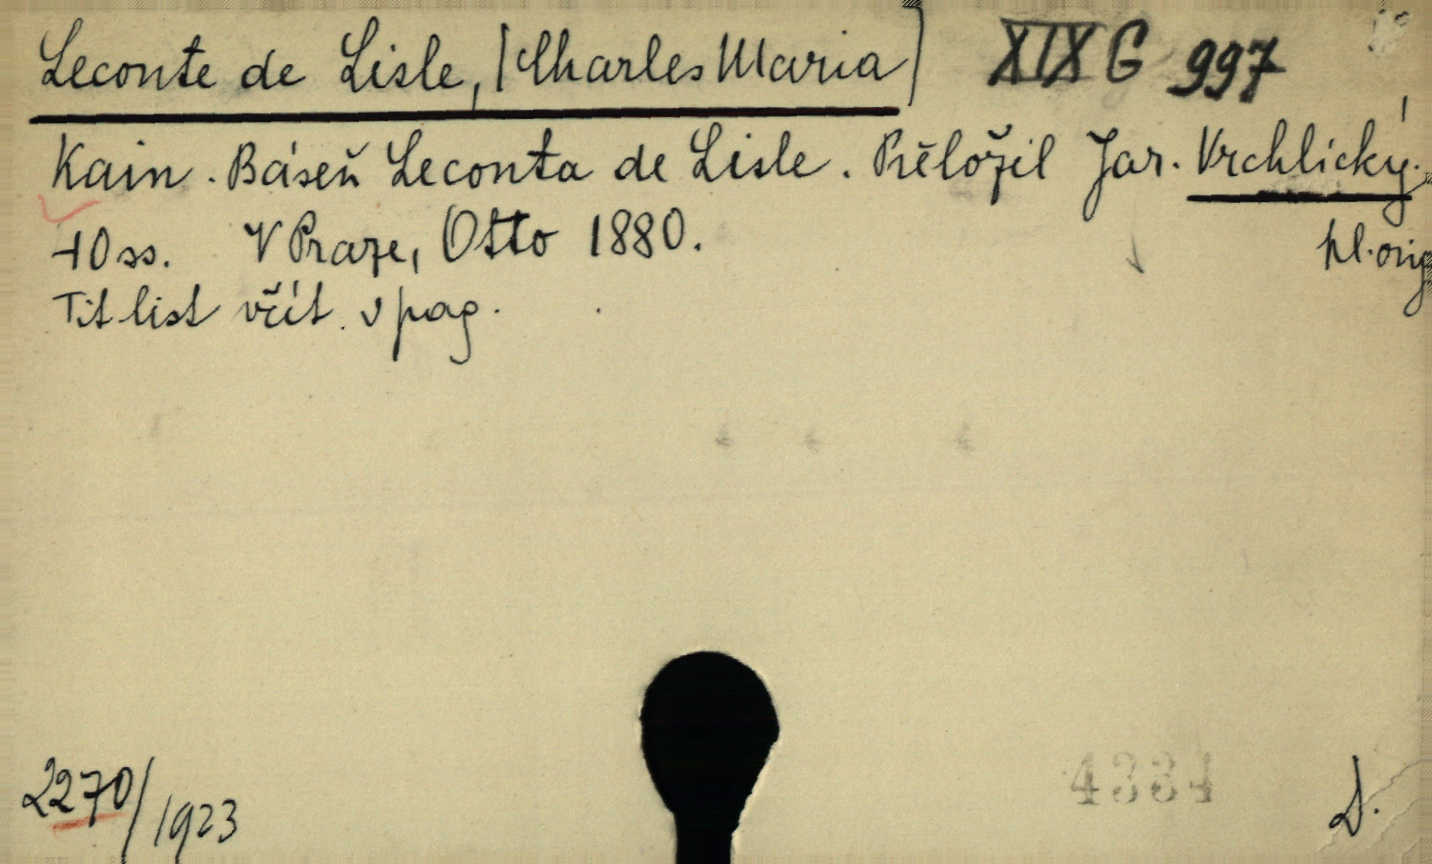 Leconte de Lisle, [Charles Maria] XIX G 997
Kain. Báseň Leconta de Lisle. Přeložil Jar. Vrchlický.
40 ss. V Praze, Otto 1880. hl. orig
Tit. list včít. v pag.
2270/1923
4334
D.